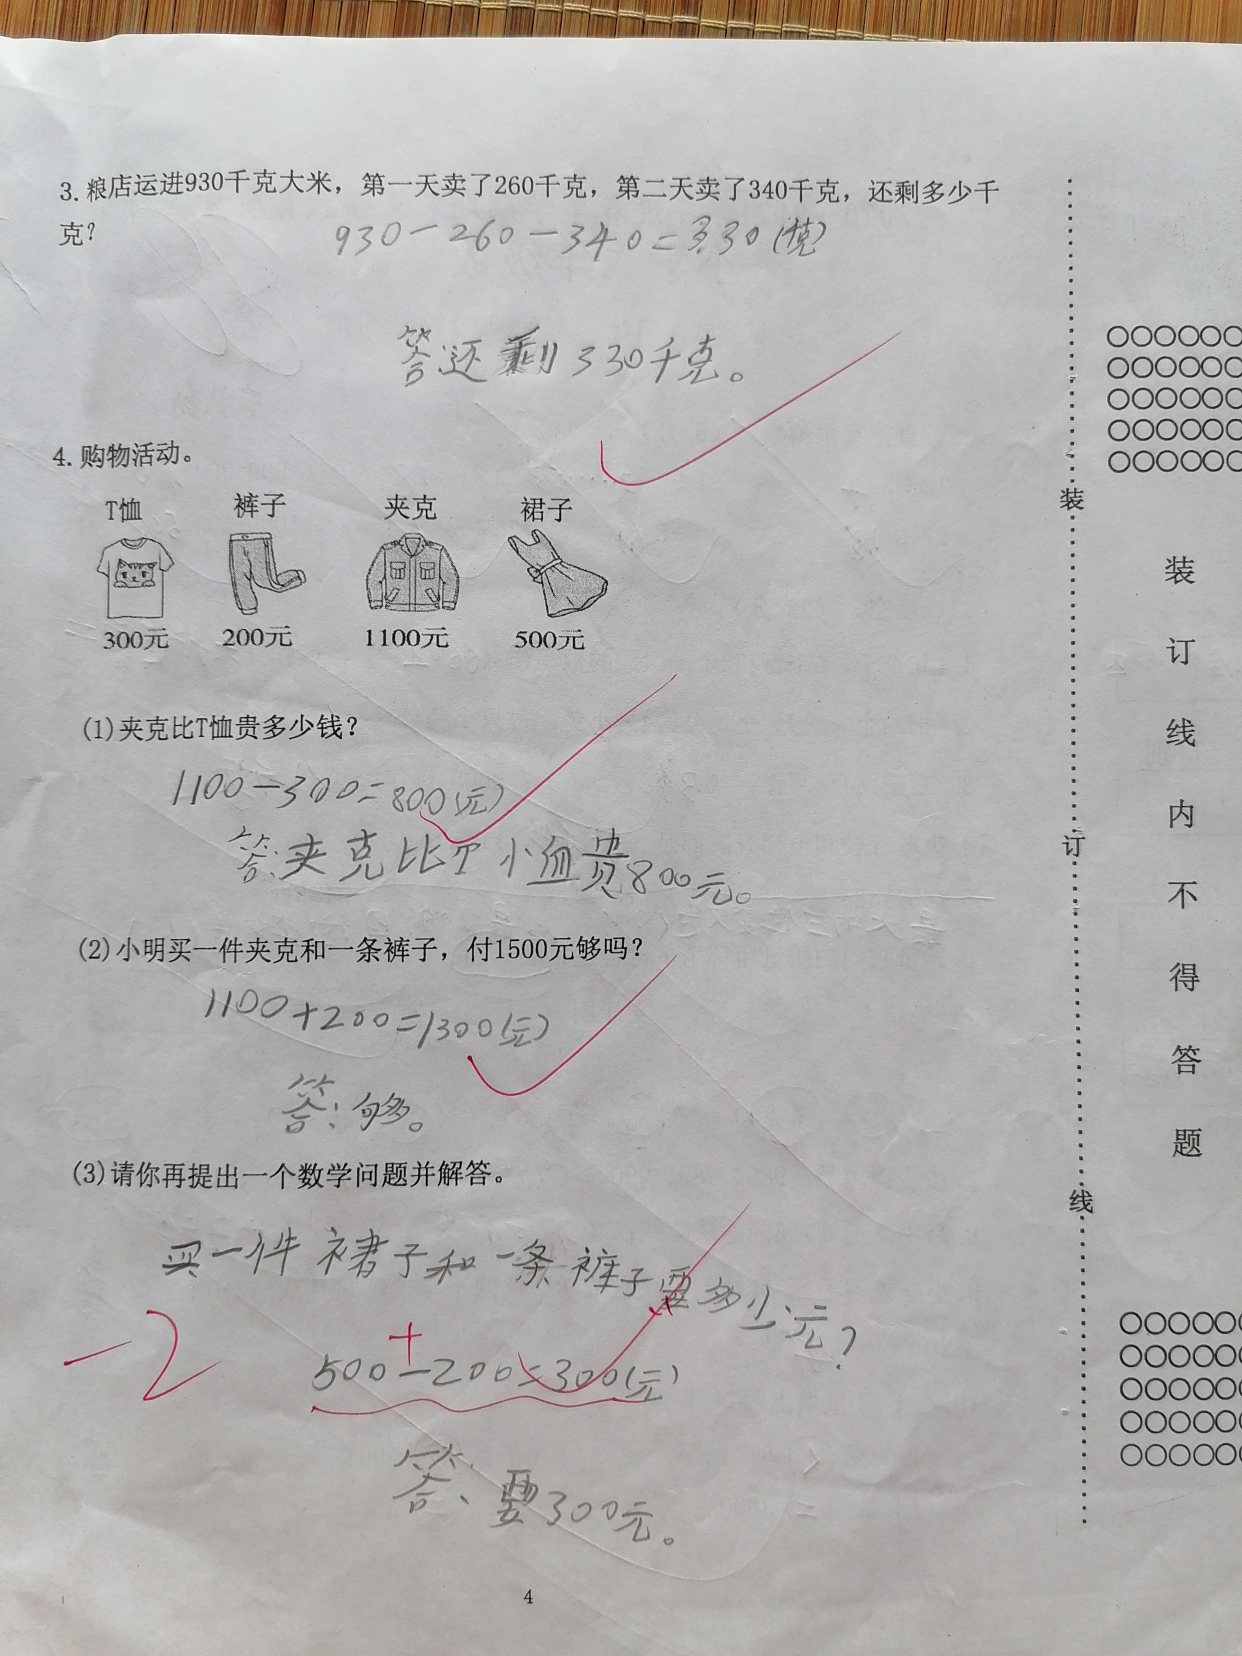 3.粮店运进930千克大米，第一天卖了260千克，第二天卖了340千克，还剩多少千
克？
930-260-340=330(千克)
答:还剩330千克。
4.购物活动。
T恤 裤子 夹克 裙子
300元 200元 1100元 500元
(1)夹克比T恤贵多少钱？
1100-300=800(元)
答:夹克比T恤贵800元。
(2)小明买一件夹克和一条裤子，付1500元够吗？
1100+200=1300(元)
答:够。
(3)请你再提出一个数学问题并解答。
买一件裙子和一条裤子要多少元？
-2
+
500-200=300(元)
答、要300元。
4
装
订
线
装
订
线
内
不
得
答
题